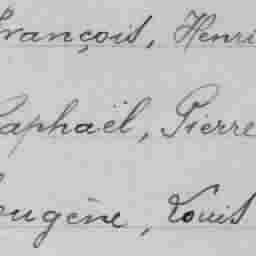 François, Henri
Raphaël, Pierre
Eugène, Louis